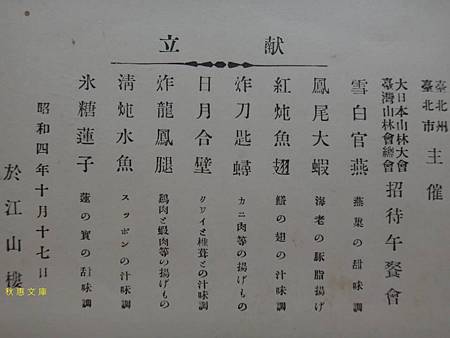 献立
臺北州
臺北市
主催
大日本山林大會
臺灣山林會總會
招待午餐會
雪白官燕 燕巢の甜味調
鳳尾大蝦 海老の豚脂揚げ
紅炖魚翅 鱶の翅の汁味調
炸刀匙蟳 カニ肉等の揚げもの
日月合璧 クワイと椎茸との汁味調
炸龍鳳腿 鷄肉と蝦肉等の揚げもの
清炖水魚 スッポンの汁味調
氷糖蓮子 蓮の實の甜味調
昭和四年十月十七日
於江山樓
秋惠文庫